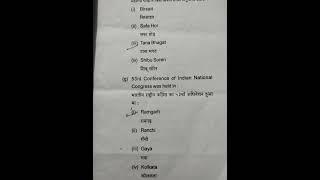 (i) Birsait
बिरसाइत
(ii) Safa Hor
सफा होड़
(iii) Tana Bhagat
ताना भगत
(iv) Shibu Soren
शिबू सोरेन
(g) 53rd Conference of Indian National
Congress was held in :
भारतीय राष्ट्रीय काँग्रेस का 53वाँ अधिवेशन हुआ
था :
(i) Ramgarh
रामगढ़
(ii) Ranchi
राँची
(iii) Gaya
गया
(iv) Kolkata
कोलकाता